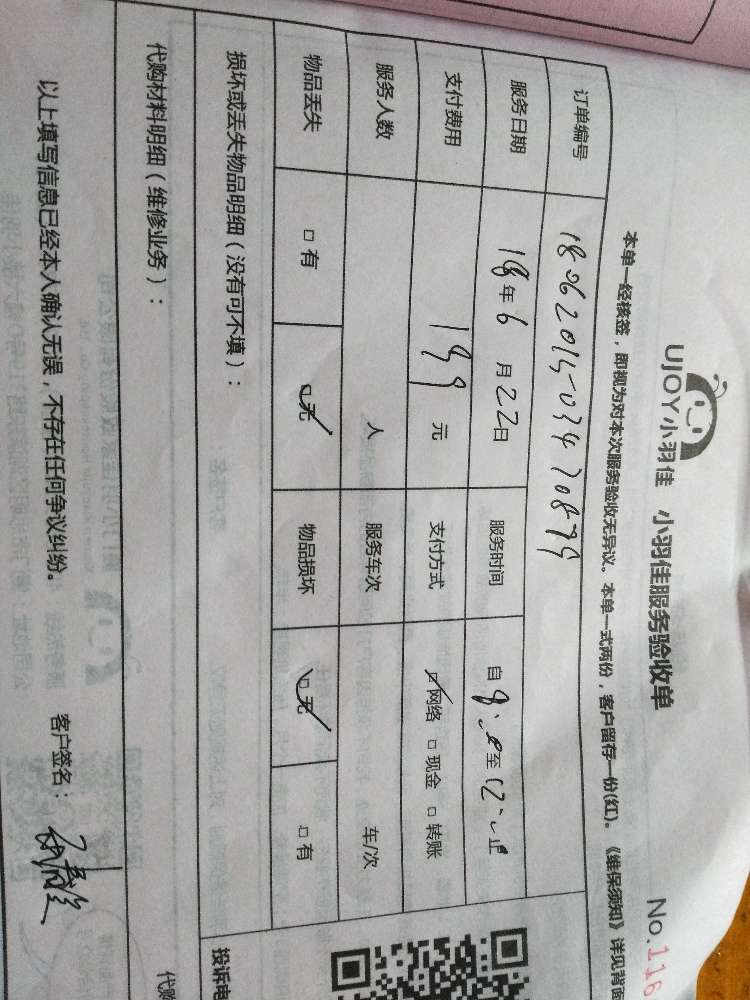 UJOY小羽佳 小羽佳服务验收单
No.116
本单一经核签，即视为对本次服务验收无异议。本单一式两份，客户留存一份(红)。《维保须知》详见背面
订单编号
服务日期 18年6月22日 服务时间 自8:至12:止
支付费用 199元 支付方式 ☑网络 □现金 □转账
服务人数 人 服务车次 车/次
物品丢失 □有 ☑无 物品损坏 ☑无 □有
损坏或丢失物品明细（没有可不填）：
投诉电
代购材料明细（维修业务）：
代购
以上填写信息已经本人确认无误，不存在任何争议纠纷。 客户签名：